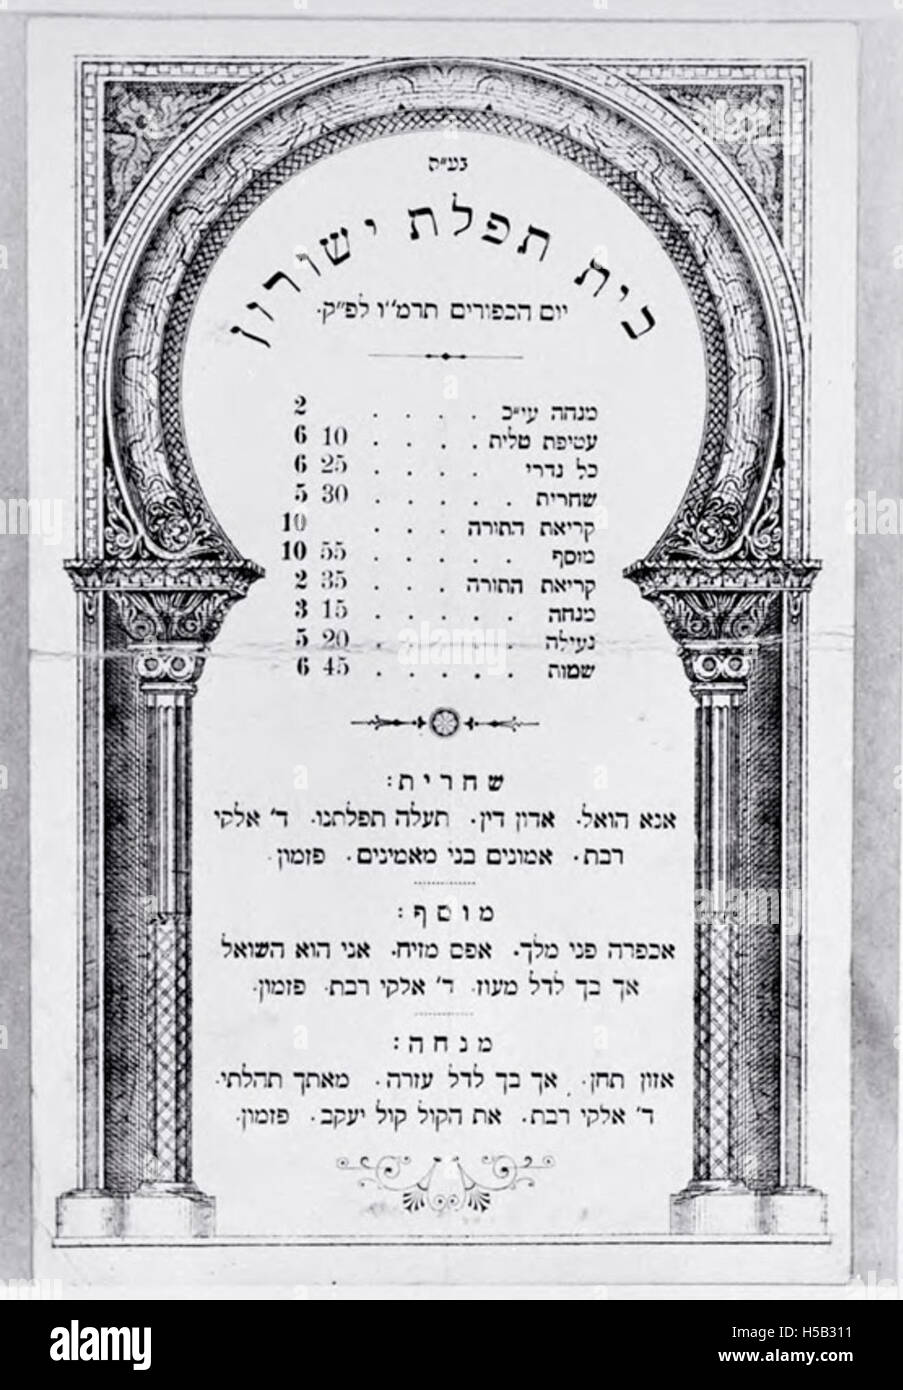 בע״ה
בית תפלת ישורון
יום הכפורים תרמ״ו לפ״ק.
מנחה עי״כ . . . . 2
עטיפת טלית . . . . 6 10
כל נדרי . . . . 6 25
שחרית . . . . . 5 30
קריאת התורה . . . 10
מוסף . . . . . 10 55
קריאת התורה . . . 2 35
מנחה . . . . . 3 15
נעילה . . . . 5 20
שמות . . . . . 6 45
שחרית:
אנא הואל. אדון דין. תעלה תפלתנו. ד' אלקי
רבת. אמונים בני מאמינים. פזמון.
מוסף:
אכפרה פני מלך. אפס מזיח. אני הוא השואל
אך בך לדל מעוז. ד' אלקי רבת. פזמון.
מנחה:
אזון תחן. אך בך לדל עזרה. מאתך תהלתי.
ד' אלקי רבת. את הקול קול יעקב. פזמון.
alamy stock photo
a
alamy
H5B311
www.alamy.com